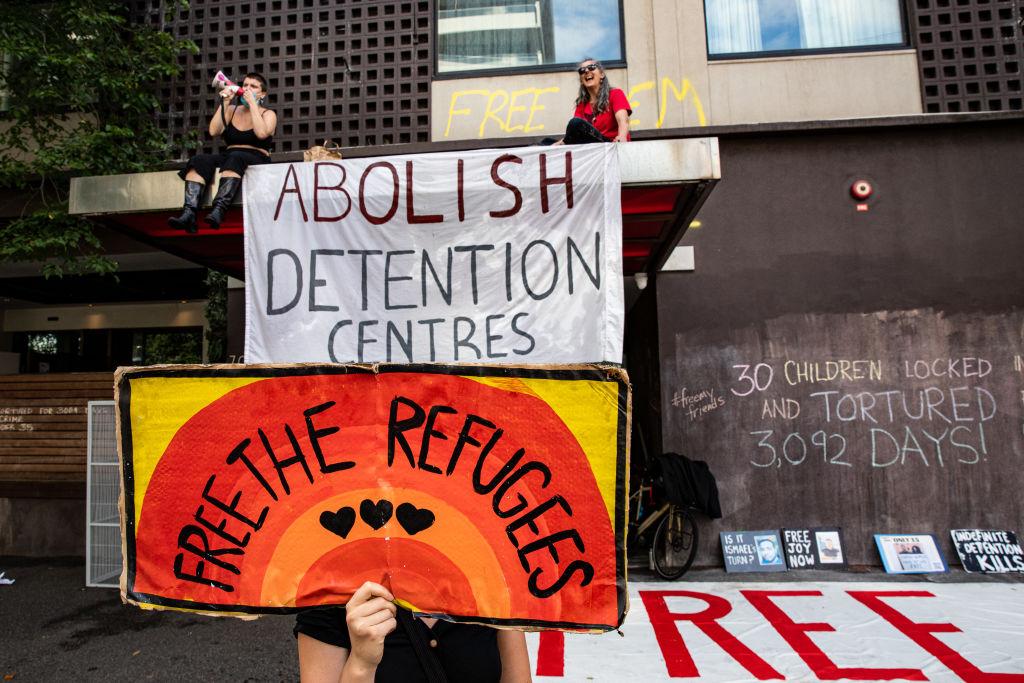 FREE THEM
ABOLISH
DETENTION
CENTRES
FREE THE REFUGEES
#freemy
friends
30 CHILDREN LOCKED
AND TORTURED
3,092 DAYS!
IS IT
ISMAEL'S
TURN?
FREE
JOY
NOW
INDEFINITE
DETENTION
KILLS
FREE